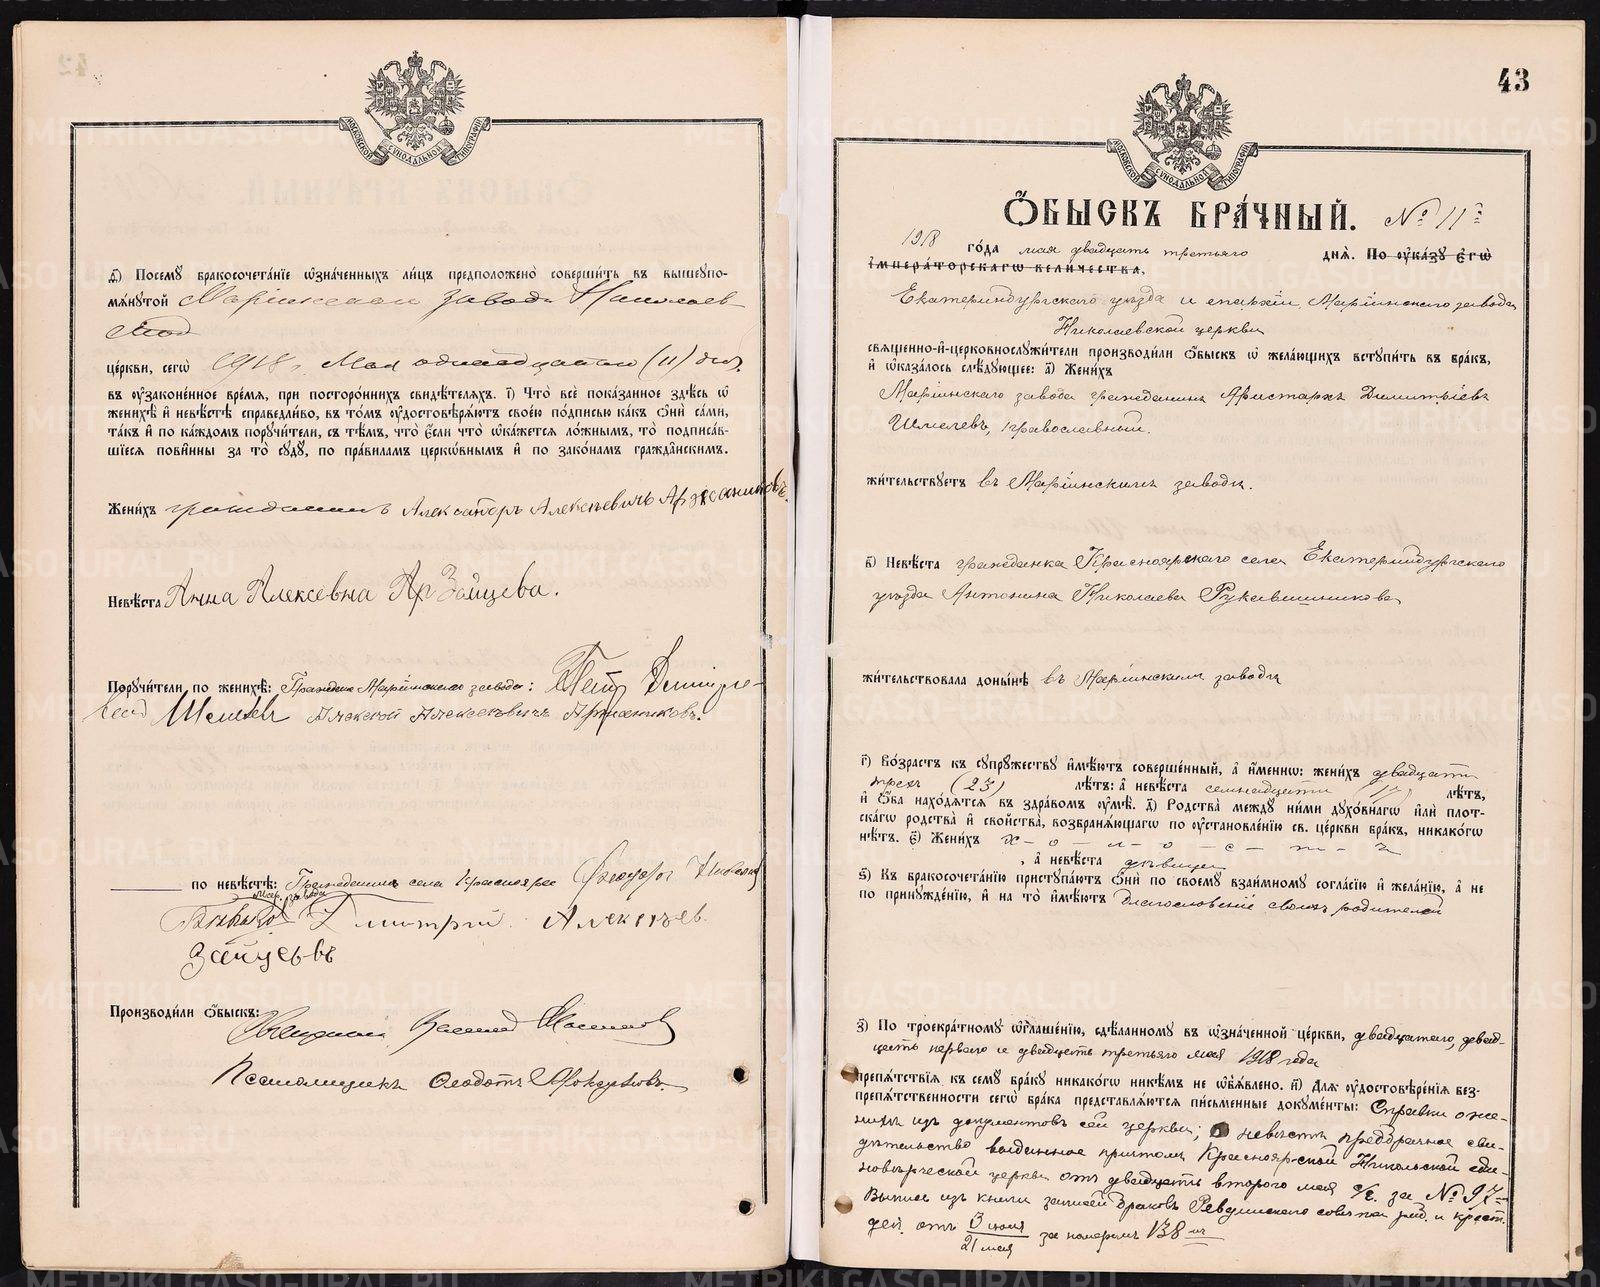 МОСКОВСКОЙ СѴНОДАЛЬНОЙ ТИПОГРАФІИ
з) Посему бракосочетаніе ѡзначенныхъ лицъ предположено совершить въ вышеупо-
мянутой Маріинскаго завода Николаев-
ской
церкви, сегѡ 1918 г. Мая одинадцатаго (11) дня,
въ оузаконенное время, при постороннихъ свидѣтеляхъ. і) Что все показанное здѣсь ѡ
женихѣ и невѣстѣ справедливо, въ томъ оудостовѣряютъ своею подписью какъ ѻни сами,
такъ и по каждомъ поручители, съ тѣмъ, что если что ѡкажется ложнымъ, то подписав-
шіеся повинны за то суду, по правиламъ церкѡвнымъ и по законамъ гражданскимъ.
Женихъ гражданинъ Александръ Алексѣевичъ Аржанниковъ.
Невѣста Анна Алексевна Зайцева.
Поручители по женихѣ: Граждане Маріинскаго завода: Петр Дмитрие-
Шмелев Алексей Алексѣевичъ Аржанниковъ.
по невѣстѣ: Гражданинъ села Краснояра
Мар. завода
Дмитрий Алексѣев
Зайцевъ
Производили Ѻбыскъ:
Священникъ Василий
Псаломщикъ Ѳеодотъ
43
МОСКОВСКОЙ СѴНОДАЛЬНОЙ ТИПОГРАФІИ
Ѻбыскъ брачный. № 11й
1918 года мая двадцать третьяго дня. По оуказу Егѡ
Императорскагѡ Величества,
Екатеринбургскаго уѣзда и епархіи, Маріинскаго завода
Николаевской церкви
священно-и-церковнослужители производили Ѻбыскъ ѡ желающихъ вступить въ бракъ,
и ѡказалось слѣдующее: а) Женихъ
Маріинскаго завода гражданинъ Аристархъ Димитріевъ
Шмелевъ, православный.
жительствуетъ въ Маріинскомъ заводѣ.
в) Невѣста гражданка Красноярскаго села Екатеринбургскаго
уѣзда Антонина Николаева Рукавишникова
жительствовала донынѣ въ Маріинскомъ заводѣ
г) Возрастъ къ супружеству имѣютъ совершенный, а именнѡ: женихъ двадцати
трехъ (23) лѣтъ: а невѣста семнадцати (17) лѣтъ,
и ѻба находятся въ здравомъ оумѣ. д) Родства между ними духовнагѡ или плот-
скагѡ родства и свойства, возбраняющагѡ по оустановленію св. церкви бракъ, никакогѡ
нѣтъ. е) Женихъ х – о – л – о – с – т – ъ
, а невѣста дѣвица
ѕ) Къ бракосочетанію приступаютъ ѻни по своему взаимному согласію и желанію, а не
по принужденію, и на то имѣютъ благословеніе своихъ родителей
з) По троекратному ѡглашенію, сдѣланному въ ѡзначенной церкви, двадцатаго, двад-
цать перваго и двадцать третьяго мая 1918 года
препятствія къ сему браку никакогѡ никѣмъ не ѡбъявлено. и) Для оудостовѣренія без-
препятственности сегѡ брака представляются письменные документы: Справки о же-
нихѣ изъ документовъ сей церкви; невѣсты предбрачное сви-
дѣтельство выданное причтомъ Красноярской Никольской еди-
новѣрческой церкви отъ двадцать второго мая с/г. за № 97
Выпись изъ книги записей браковъ Ревдинскаго совѣта раб. и крест.
деп. отъ 3 іюня / 21 мая за номеромъ 138